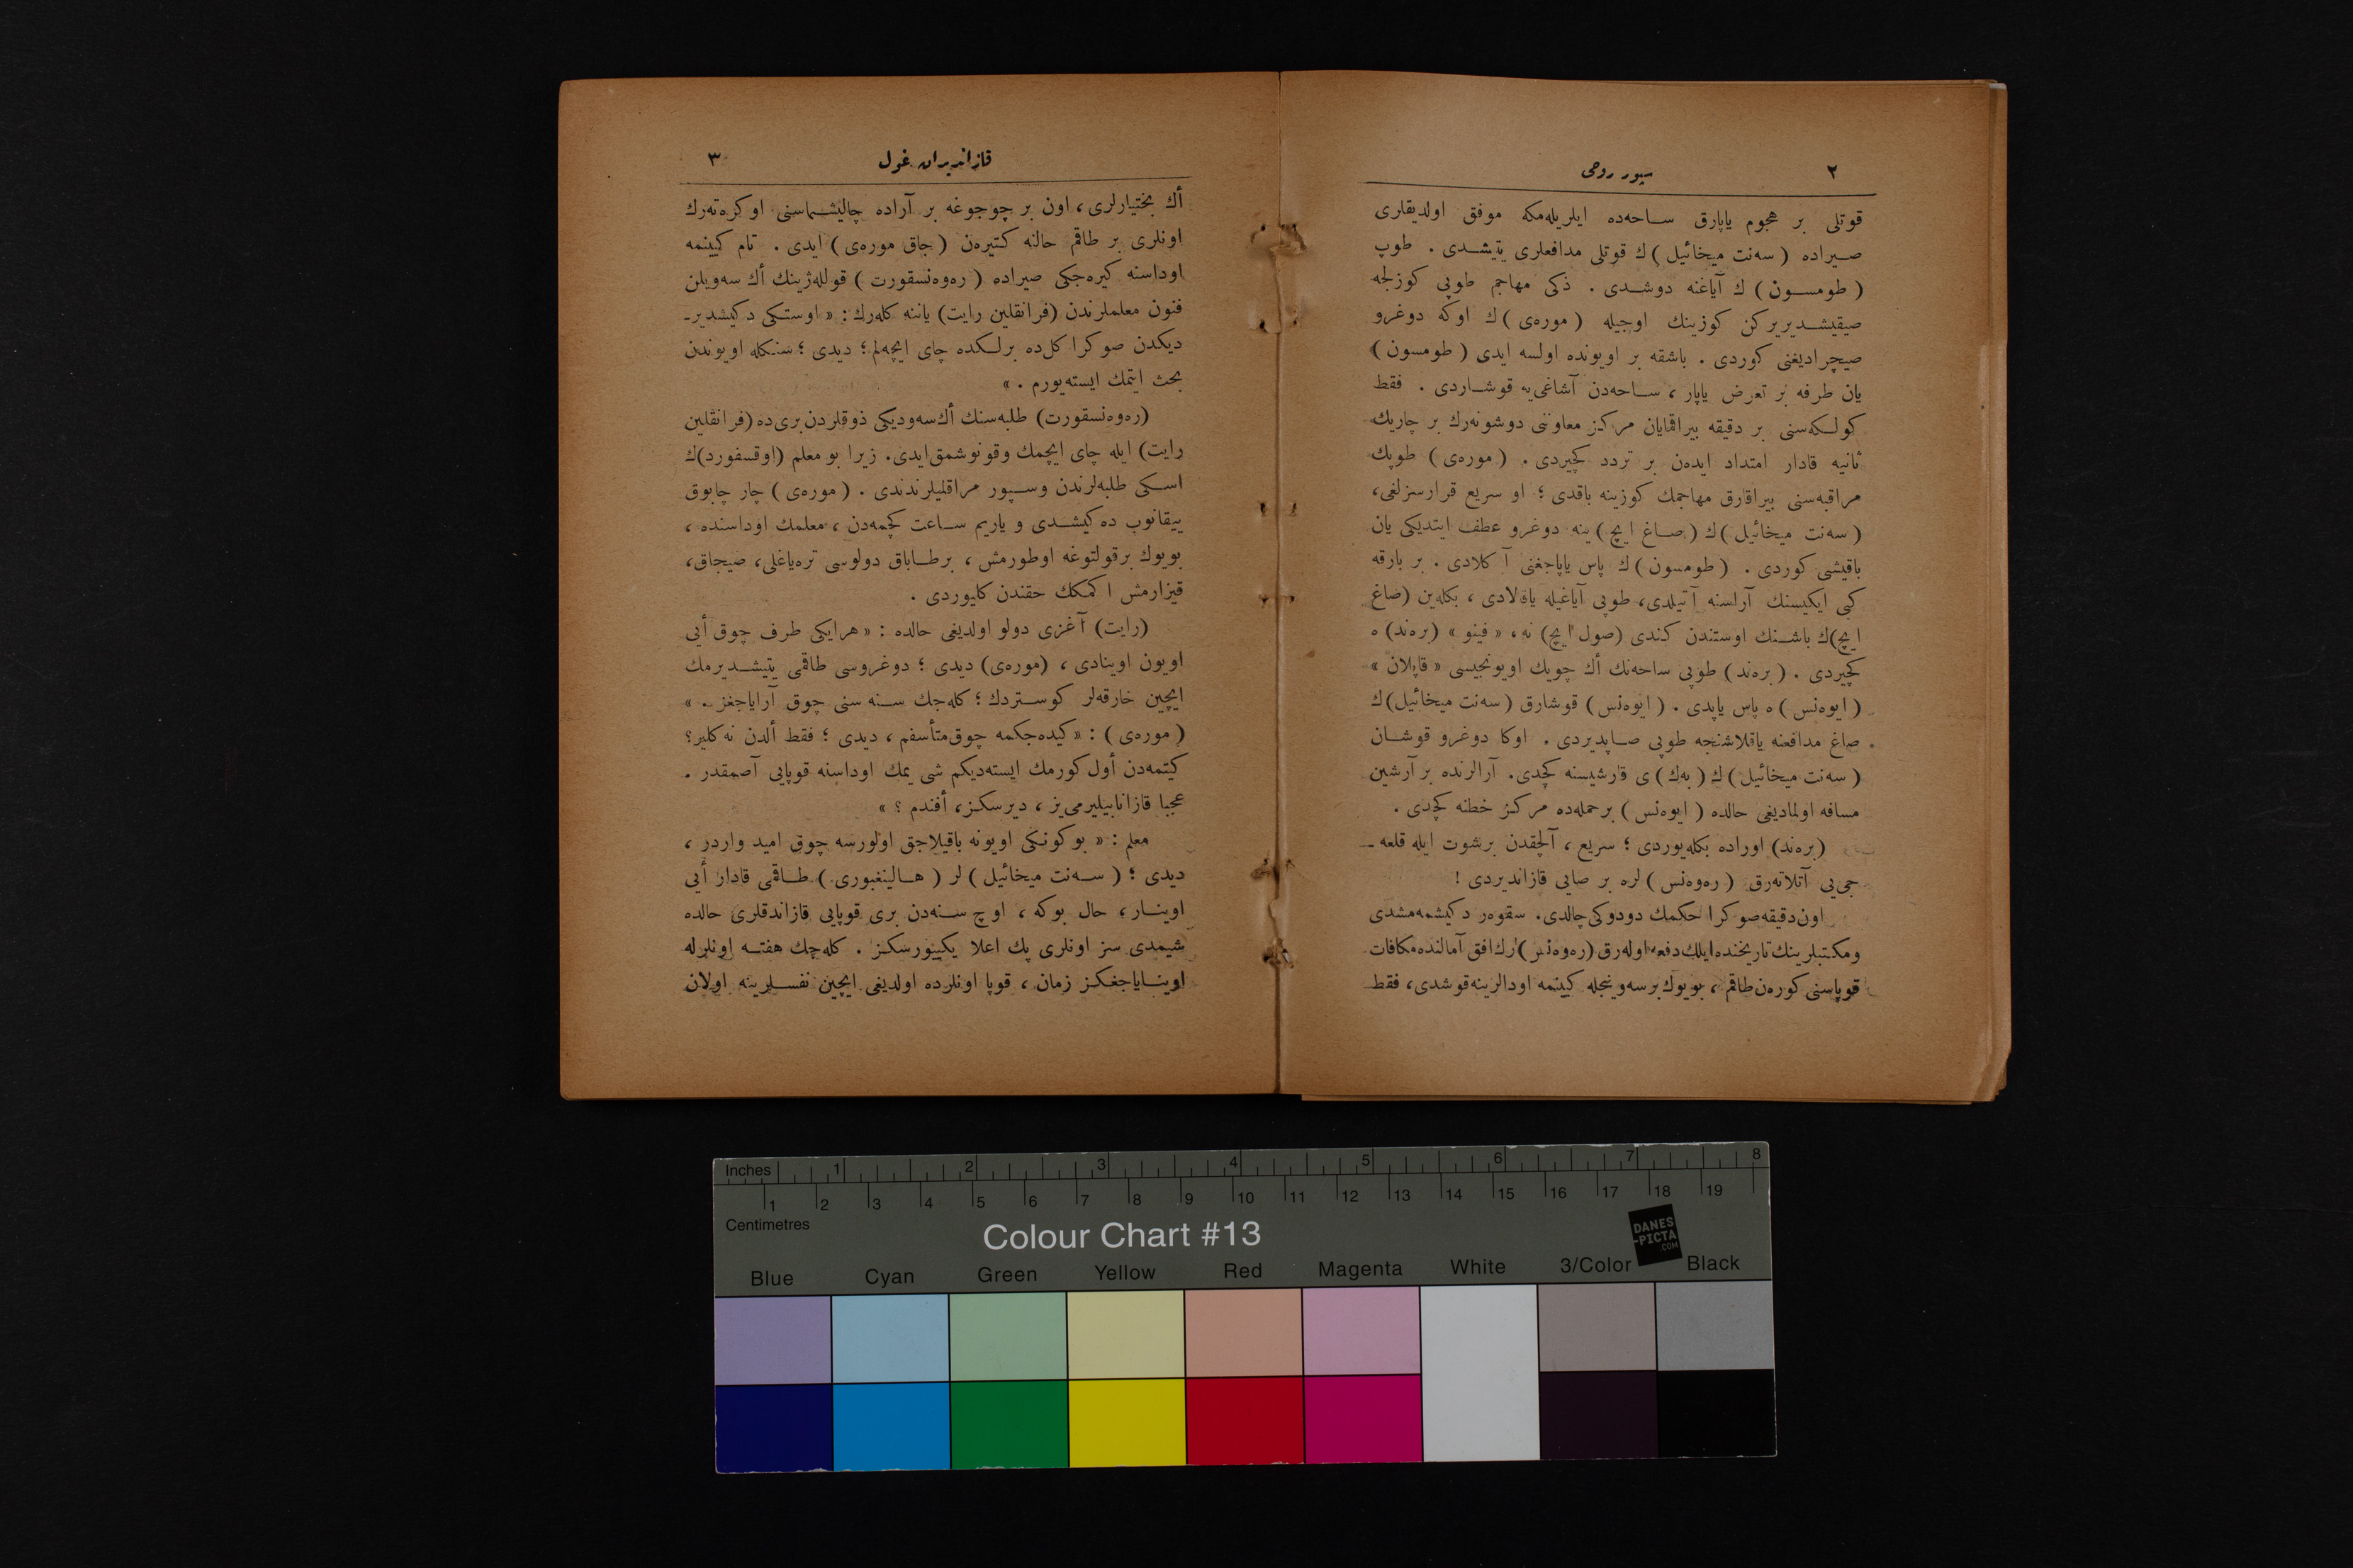 ٢
سپور روحی
قوتلی بر هجوم یاپارق ساحه‌ده ایلریله‌مكه موفق اولدیقلری
صیراده (سه‌نت میخائیل)ك قوتلی مدافعلری یتیشدی . طوپ
(طومسون)ك آیاغنه دوشدی . ذكی مهاجم طوپی كوزلجه
صیقیشدیریركن كوزینك اوجیله (موره‌ی)ك اوكه دوغرو
صیچرادیغنی كوردی . باشقه بر اویونده اولسه ایدی (طومسون)
یان طرفه بر تعرض یاپار ، ساحه‌دن آشاغی‌یه قوشاردی . فقط
كولكه‌سنی بر دقیقه بیراقمایان مركز معاوننی دوشونه‌رك بر چاریك
ثانیه قادار امتداد ایده‌ن بر تردد كچیردی . (موره‌ی) طوپك
مراقبه‌سنی بیراقارق مهاجمك كوزینه باقدی ؛ او سریع قرارسزلغی،
(سه‌نت میخائیل)ك (صاغ ایچ)ینه دوغرو عطف ایتدیكی یان
باقیشی كوردی . (طومسون)ك پاس یاپاجغنی آكلادی . بر بارقه
كبی ایكیسنك آراسنه آتیلدی، طوپی آیاغیله یاقالادی ، بكله‌ین (صاغ
ایچ)ك باشنك اوستندن كندی (صول ایچ) نه، « فینو » (بره‌ند) ه
كچیردی . (بره‌ند) طوپی ساحه‌نك أك چویك اویونجیسی « قاپلان »
(ایوه‌نس) ه پاس یاپدی . (ایوه‌نس) قوشارق (سه‌نت میخائیل)ك
صاغ مدافعنه یاقلاشنجه طوپی صاپدیردی . اوكا دوغرو قوشان
(سه‌نت میخائیل)ك (به‌ك)ی قارشیسنه كچدی. آرالرنده بر آرشین
مسافه اولمادیغی حالده (ایوه‌نس) برحمله‌ده مركز خطنه كچدی .
(بره‌ند) اوراده بكله‌یوردی ؛ سریع ، آلچقدن برشوت ایله قلعه ـ
جی‌یی آتلاته‌رق (ره‌وه‌نس) لره بر صایی قازاندیردی !
اون‌دقیقه صوكرا حكمك دودوكی چالدی. سقوه‌ر دكیشمه‌مشدی
ومكتبلرینك تاریخنده ایلك دفعه اوله‌رق (ره‌وه‌نس)لرك افق آمالنده مكافات
قوپاسنی كوره‌ن طاقم ، بویوك بر سه‌وینجله كیینمه اودالرینه قوشدی، فقط
قازاندیران غول
٣
أك بختیارلری، اون بر چوجوغه بر آراده چالیشماسنی اوكره‌ته‌رك
اونلری بر طاقم حالنه كتیره‌ن (جاق موره‌ی) ایدی . تام كیینمه
اوداسنه كیره‌جكی صیراده (ره‌وه‌نسقورت) قوللەژینك أك سه‌ویلن
فنون معلملرندن (فرانقلین رایت) یاننه كله‌رك : « اوستكی دكیشدیرـ
دیكدن صوكرا كل‌ده برلكده چای ایچه‌لم ؛ دیدی ؛ سنكله اویوندن
بحث ایتمك ایسته‌یورم . »
(ره‌وه‌نسقورت) طلبه‌سنك أك‌سه‌ودیكی ذوقلردن بری‌ده (فرانقلین
رایت) ایله چای ایچمك وقونوشمق ایدی. زیرا بو معلم (اوقسفورد)ك
اسكی طلبه‌لرندن وسپور مراقلیلرندندی . (موره‌ی) چار چابوق
ییقانوب ده‌كیشدی و یاریم ساعت كچمه‌دن ، معلمك اوداسنده ،
بویوك برقولتوغه اوطورمش ، برطاباق دولوسی تره‌یاغلی، صیجاق،
قیزارمش اكمكك حقندن كلیوردی .
(رایت) آغزی دولو اولدیغی حالده : « هرایكی طرف چوق أیی
اویون اوینادی ، (موره‌ی) دیدی ؛ دوغروسی طاقمی یتیشدیرمك
ایچین خارقه‌لر كوستردك ؛ كله‌جك سنه سنی چوق آرایاجغز . »
(موره‌ی) : « كیده‌جكمه چوق متأسفم ، دیدی ؛ فقط ألدن نه كلیر؟
كیتمه‌دن أول كورمك ایسته‌دیكم شی یمك اوداسنه قوپایی آصمقدر .
عجبا قازانابیلیرمی‌یز ، دیرسكز، أفندم ؟ »
معلم : « بوكونكی اویونه باقیلاجق اولورسه چوق امید واردر ،
دیدی ؛ (سه‌نت میخائیل) لر (هالینغبوری) طاقمی قادار أیی
اوینار ؛ حال بوكه ، اوچ سنه‌دن بری قوپایی قازاندقلری حالده
شیمدی سز اونلری پك اعلا یكییورسكز . كله‌جك هفته اونلرله
اوینایاجغكز زمان ، قوپا اونلرده اولدیغی ایچین نفسلرینه اولان
Inches 1 2 3 4 5 6 7 8
1 2 3 4 5 6 7 8 9 10 11 12 13 14 15 16 17 18 19
Centimetres
Colour Chart #13
DANES
-PICTA
.COM
Blue Cyan Green Yellow Red Magenta White 3/Color Black